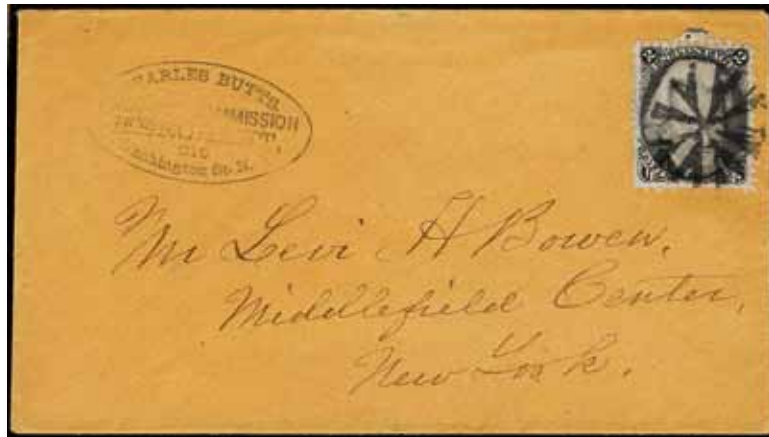 CHARLES BUTTS,
COMMISSION
Washington St. N.
Mr Levi H Bowen,
Middlefield Center,
New York.